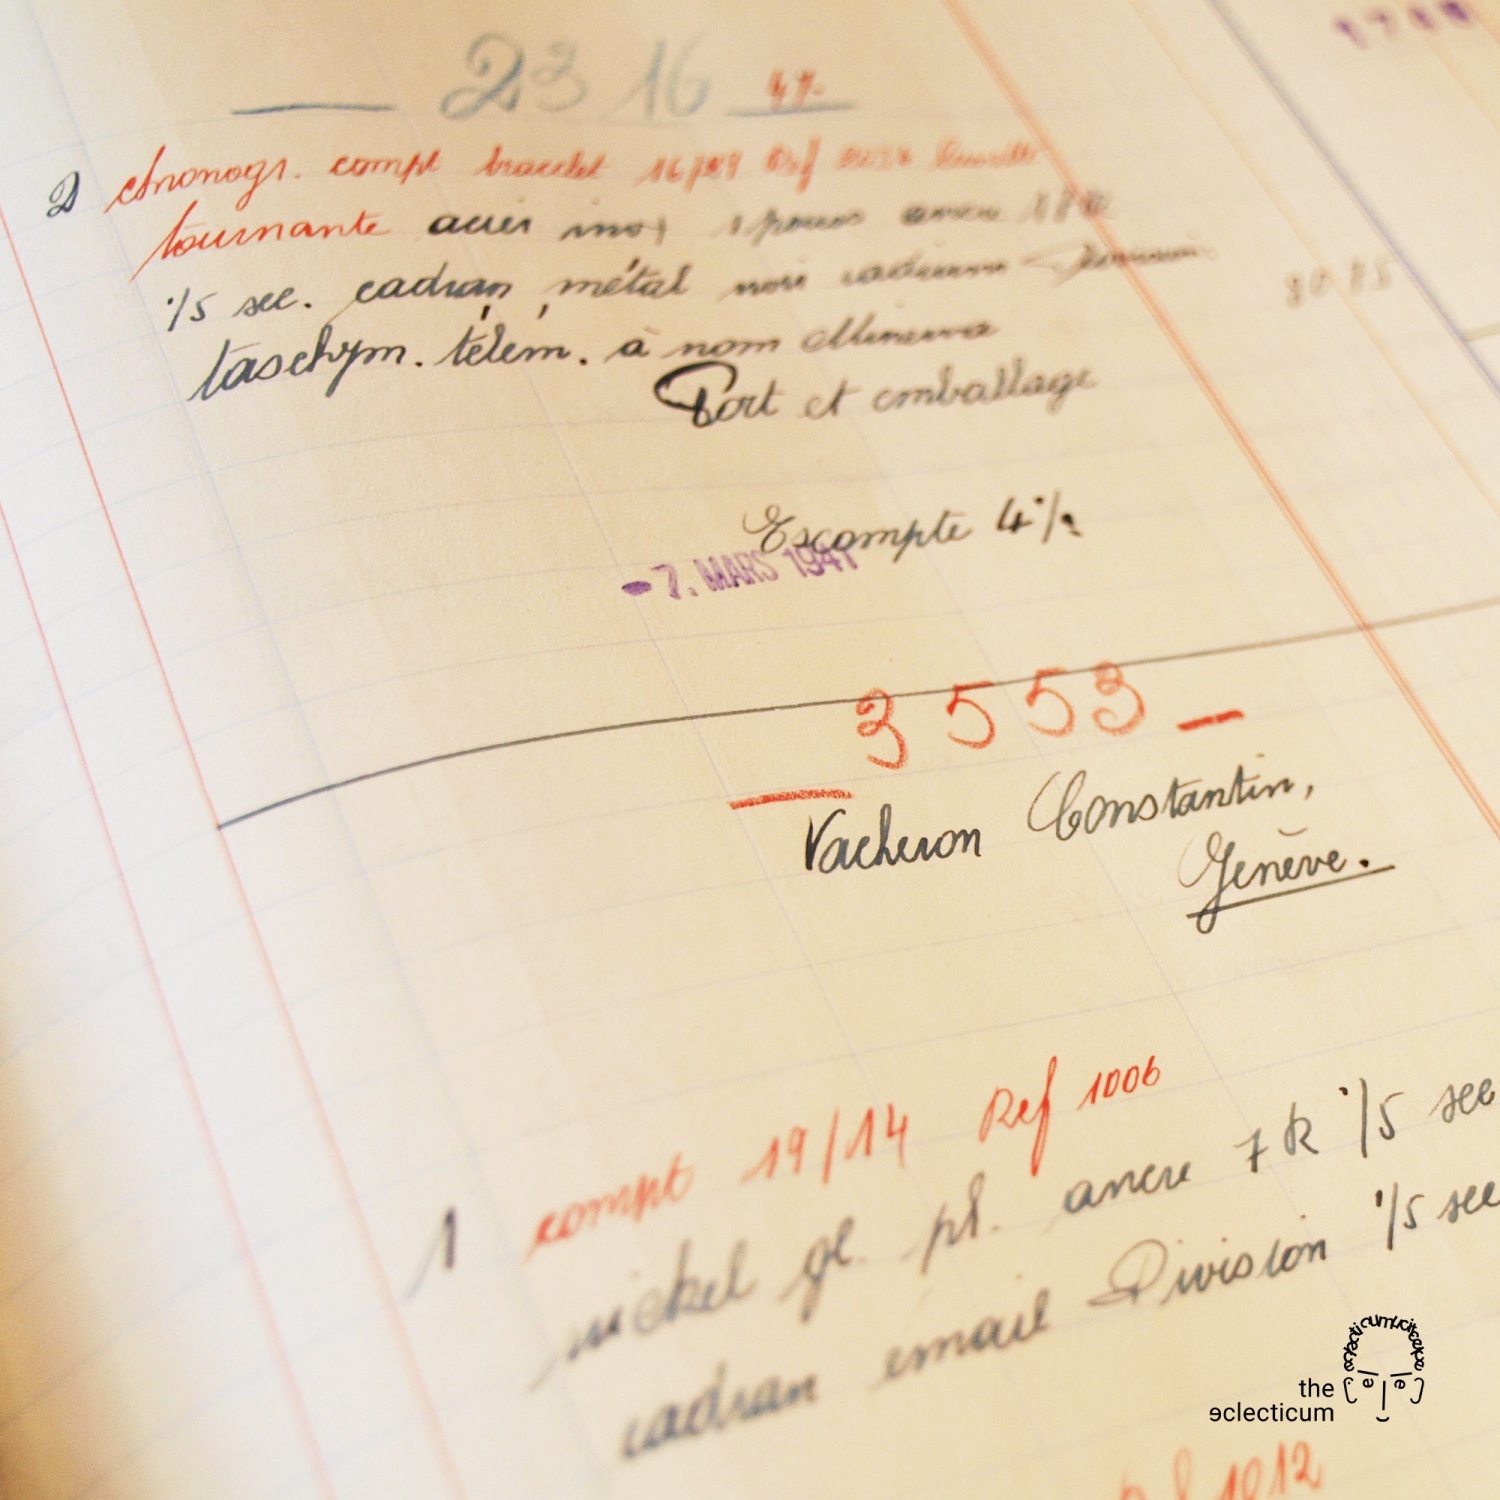 2316
2 chronogr. compt bracelet 16/ Ref lunette
tournante acier inox 2 pouss. ancre 17 R
1/5 sec. cadran métal noir radium
taschym. télém. à nom Minerva
80 75
Port et emballage
Escompte 4%
- 7. MARS 1941
3553
Vacheron Constantin,
Genève.
1 compt 19/14 Ref 1006
nickel gl. pl. ancre 7 R 1/5 sec
cadran email Division 1/5 sec
1012
the
eclecticum